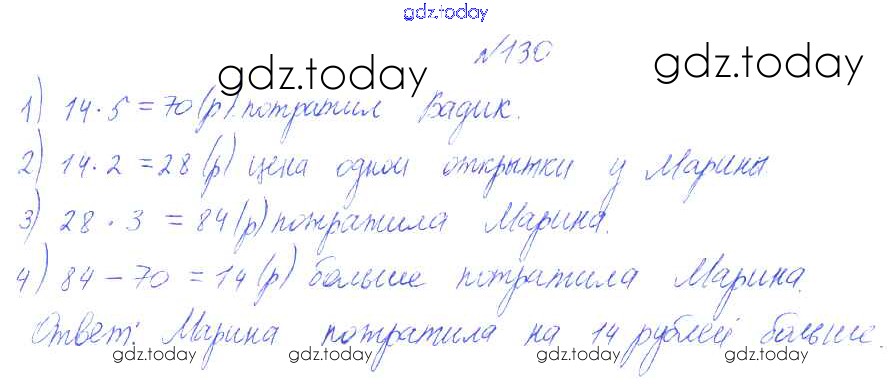 gdz.today
№130
gdz.today gdz.today
1) 14 · 5 = 70 (р) потратил Вадик.
2) 14 · 2 = 28 (р) цена одной открытки у Марины
3) 28 · 3 = 84 (р) потратила Марина.
4) 84 - 70 = 14 (р) больше потратила Марина.
Ответ: Марина потратила на 14 рублей больше.
gdz.today gdz.today gdz.today gdz.today